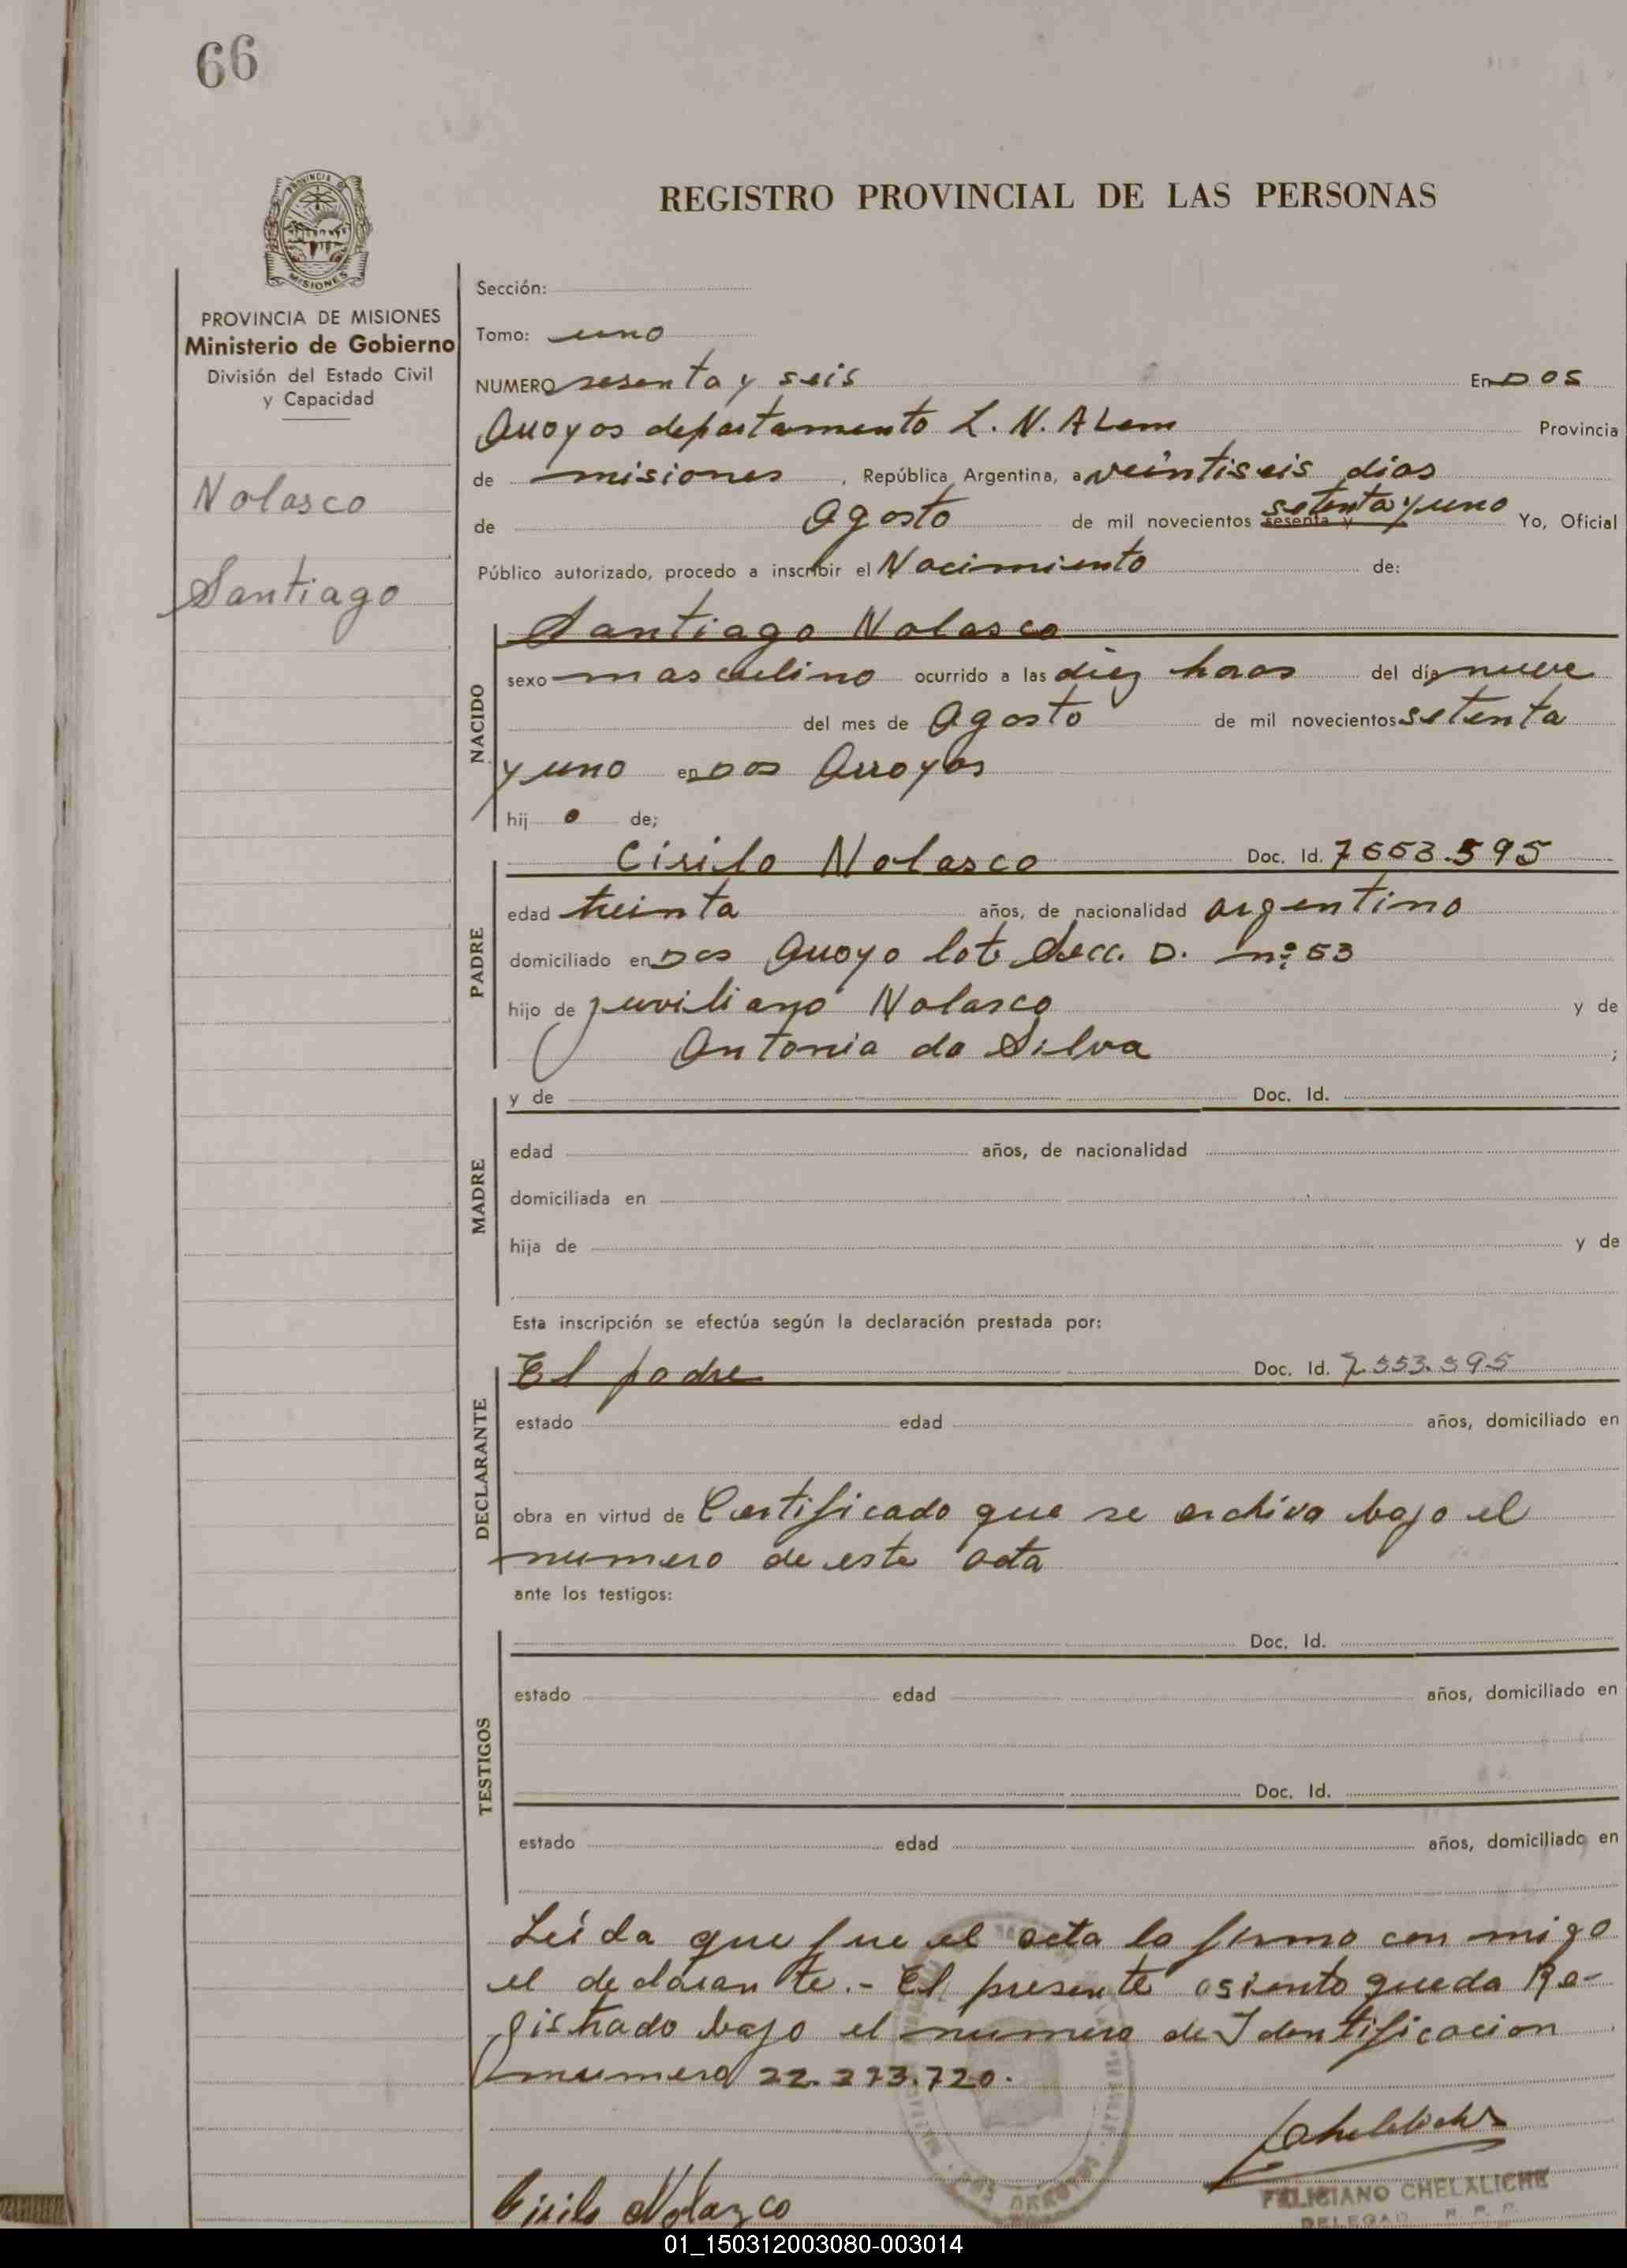 66
PROVINCIA DE MISIONES
REGISTRO PROVINCIAL DE LAS PERSONAS
PROVINCIA DE MISIONES
Ministerio de Gobierno
División del Estado Civil
y Capacidad
Nolasco
Santiago
Sección:
Tomo: uno
NUMERO sesenta y seis En Dos
Arroyos departamento L. N. ALem Provincia
de misiones, República Argentina, a veintiseis dias
de Agosto de mil novecientos sesenta y setenta y uno Yo, Oficial
Público autorizado, procedo a inscribir el Nacimiento de:
NACIDO
Santiago Nolasco
sexo masculino ocurrido a las diez horas del día nueve
del mes de Agosto de mil novecientos setenta
y uno en Dos Arroyos
hij o de;
PADRE
Cirilo Nolasco Doc. Id. 7553.595
edad treinta años, de nacionalidad argentino
domiciliado en Dos Arroyo lote Secc. D. nº 53
hijo de Nolasco y de
Antonia da Silva ;
MADRE
y de Doc. Id.
edad años, de nacionalidad
domiciliada en
hija de y de
Esta inscripción se efectúa según la declaración prestada por:
DECLARANTE
El padre Doc. Id. 7553.595
estado edad años, domiciliado en
obra en virtud de Certificado que se archiva bajo el
numero de este acta
ante los testigos:
TESTIGOS
Doc. Id.
estado edad años, domiciliado en
Doc. Id.
estado edad años, domiciliado en
Leida que fue el acta la firma con migo
el declarante.- El presente asiento queda Re-
gistrado bajo el numero de Identificacion
numero 22.273.720.
Cirilo Nolazco
DOS ARROYOS
FELICIANO CHELALICHE
DELEGAD R. P. P.
01_150312003080-003014